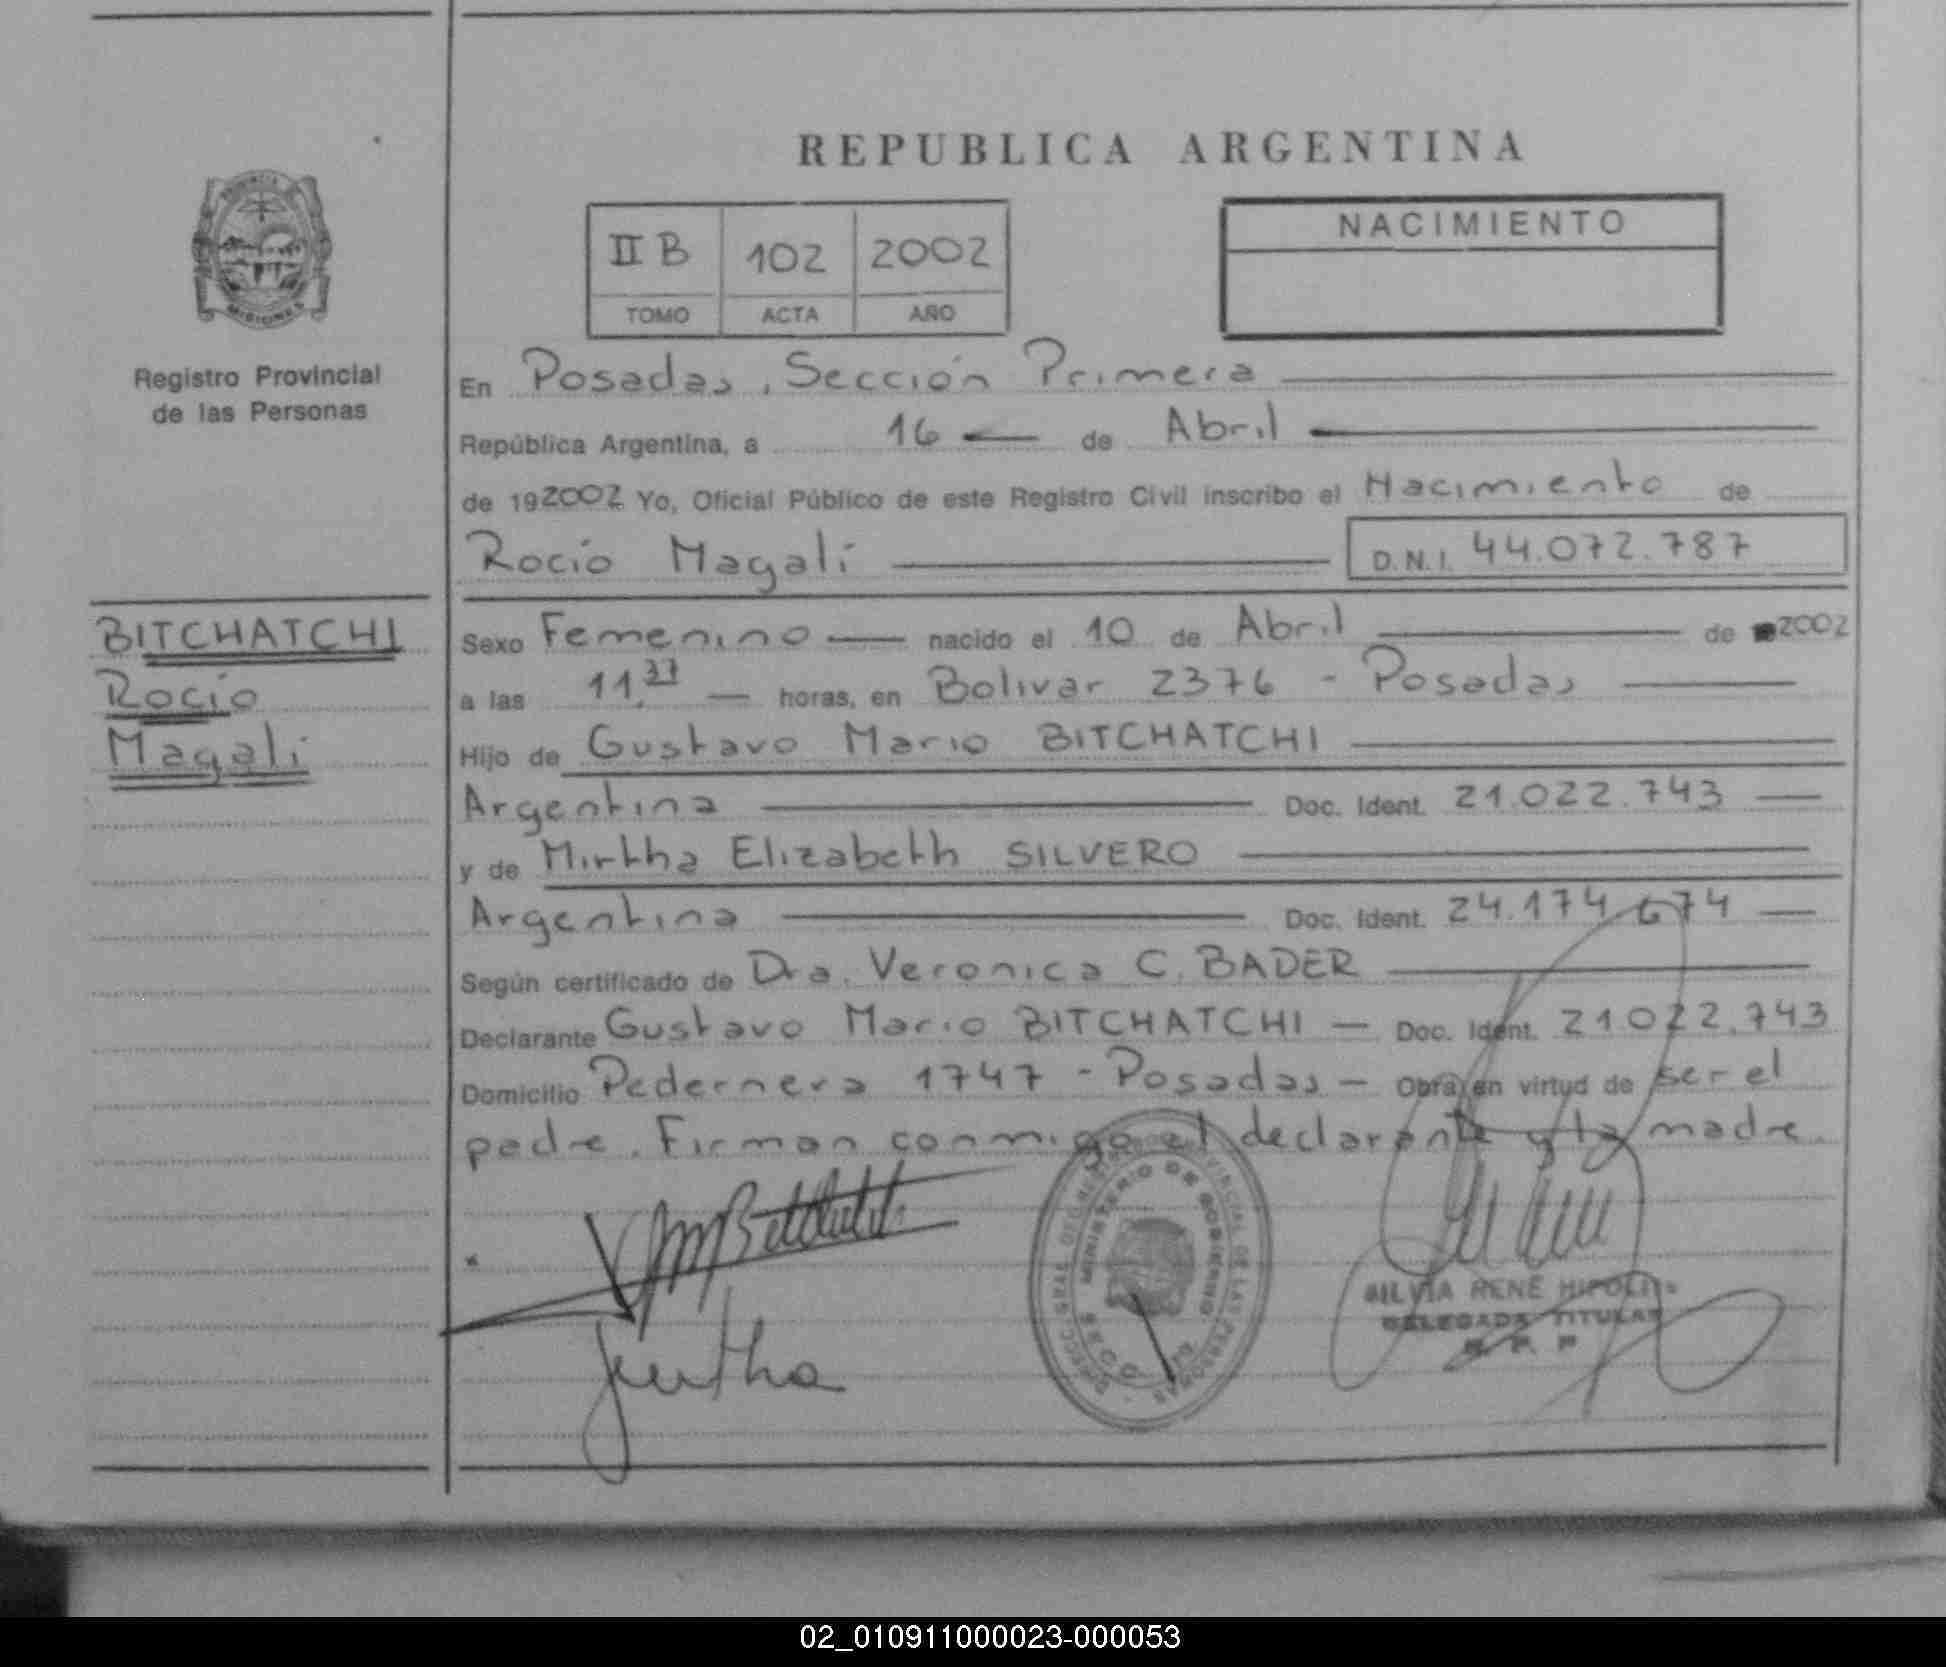 REPUBLICA ARGENTINA
PROVINCIA
MISIONES
Registro Provincial
de las Personas
II B 102 2002
TOMO ACTA AÑO
NACIMIENTO
En Posadas, Sección Primera
República Argentina, a 16 de Abril
de 192002 Yo, Oficial Público de este Registro Civil inscribo el Nacimiento de
Rocío Magalí D.N.I. 44.072.787
BITCHATCHI
Rocío
Magalí
Sexo Femenino nacido el 10 de Abril de 2002
a las 11,37 horas, en Bolivar 2376 - Posadas
Hijo de Gustavo Mario BITCHATCHI
Argentina Doc. Ident. 21.022.743
y de Mirtha Elizabeth SILVERO
Argentina Doc. Ident. 24.174.674
Según certificado de Dra. Veronica C. BADER
Declarante Gustavo Mario BITCHATCHI Doc. Ident. 21.022.743
Domicilio Pedernera 1747 - Posadas - Obra en virtud de ser el
padre. Firman conmigo el declarante y la madre.
MINISTERIO DE GOBIERNO
SILVIA RENE HIPOLITO
DELEGADA TITULAR
02_010911000023-000053